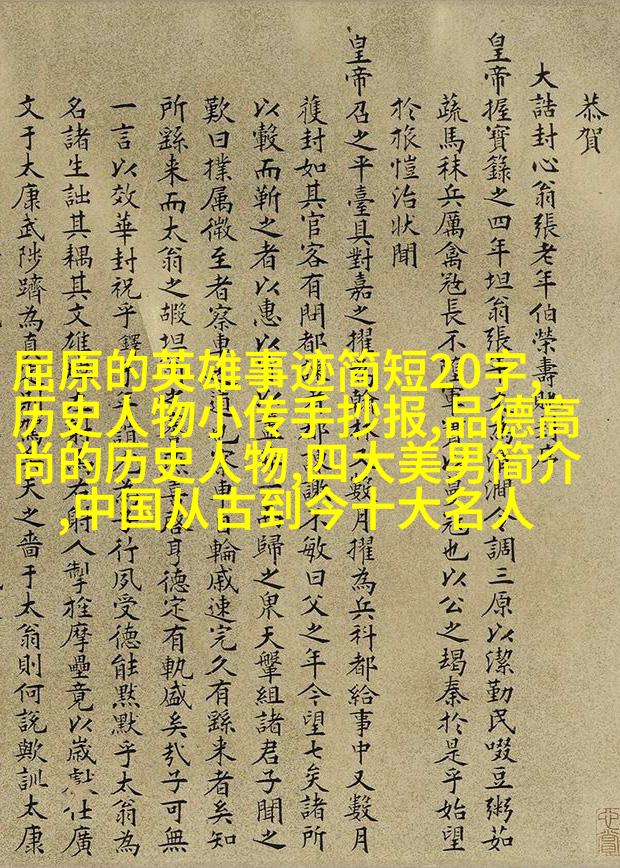 恭賀
大誥封心翁張老年伯榮壽序
皇帝握寶錄之四年坦翁張 澗令調三原以潔勤民啜豆粥如
蔬馬秣兵厲禽冦長不 軍 冠也以公之竭秦於是乎始望
於旅愷治狀聞
皇帝召之平臺具對嘉之擢 數月擢為兵科都給事中又數月
獲封如其官客有問都 謝不敏曰父之年今望七矣諸所
以轂而靳之者以惠以 歸之杲天鞶組諸君子聞之
歎曰撲属微至者察車 輪戚速完久有繇来者矣知
所繇来而太翁之嘏坦 啓耳德定有軌盛矣哉子可無
一言以效華封祝乎 行夙受德能黙默乎太翁為
名諸生詘其耦其文雄 右射人掣 摩壘竟以歲 仕廣
文于太康武陟躋為真 天之嗇于太翁則何說歟訓太康
屈原的英雄事迹简短20字,
历史人物小传手抄报,品德高
尚的历史人物,四大美男简介
,中国从古到今十大名人